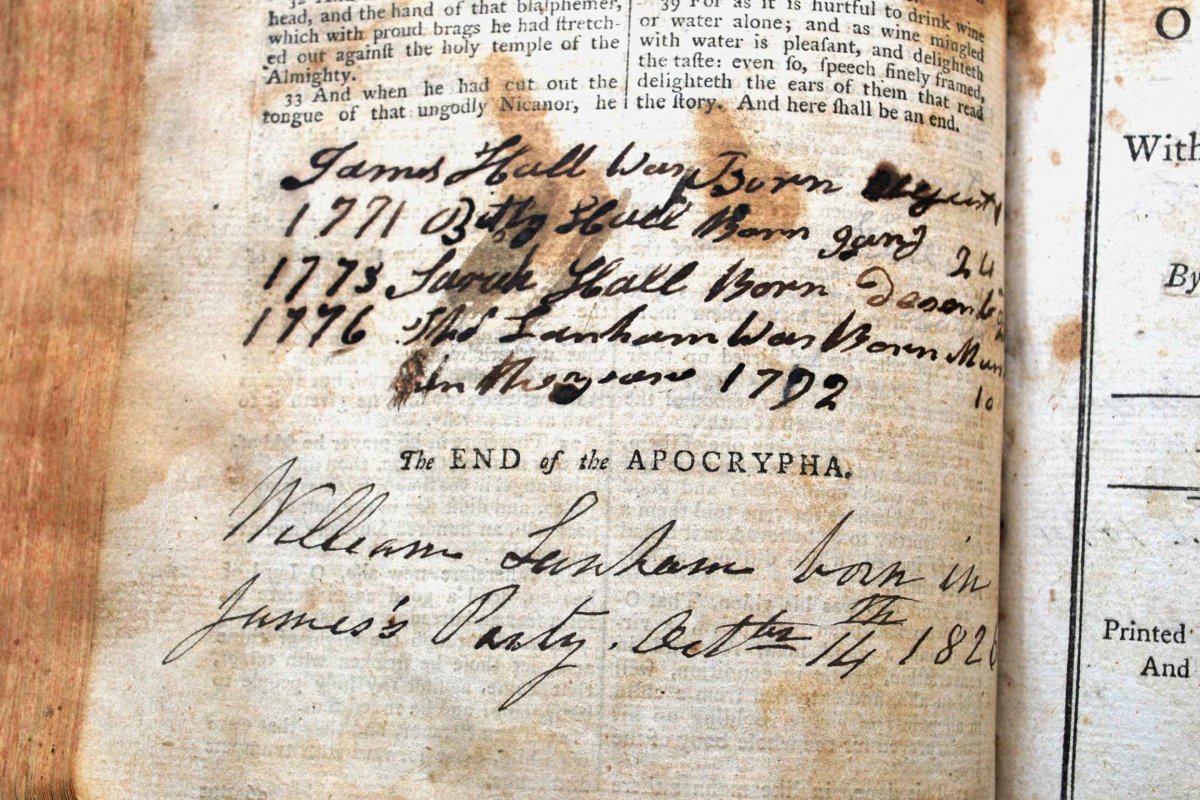 head, and the hand of that blaſphemer,
which with proud brags he had ſtretch-
ed out againſt the holy temple of the
Almighty.
33 And when he had cut out the
tongue of that ungodly Nicanor, he
39 For as it is hurtful to drink wine
or water alone; and as wine mingled
with water is pleaſant, and delighteth
the taſte: even ſo, ſpeech finely framed,
delighteth the ears of them that read
the ſtory. And here ſhall be an end.
James Hall Was Born
1771 Bitty Hall Born 24
1773 Sarah Hall Born Desembe
1776 Thos Lanham Was Born
in the yeare 1792 10
The END of the APOCRYPHA.
William Lanham born in
James's Party. Octber 14th 182
O
With
By
Printed
And